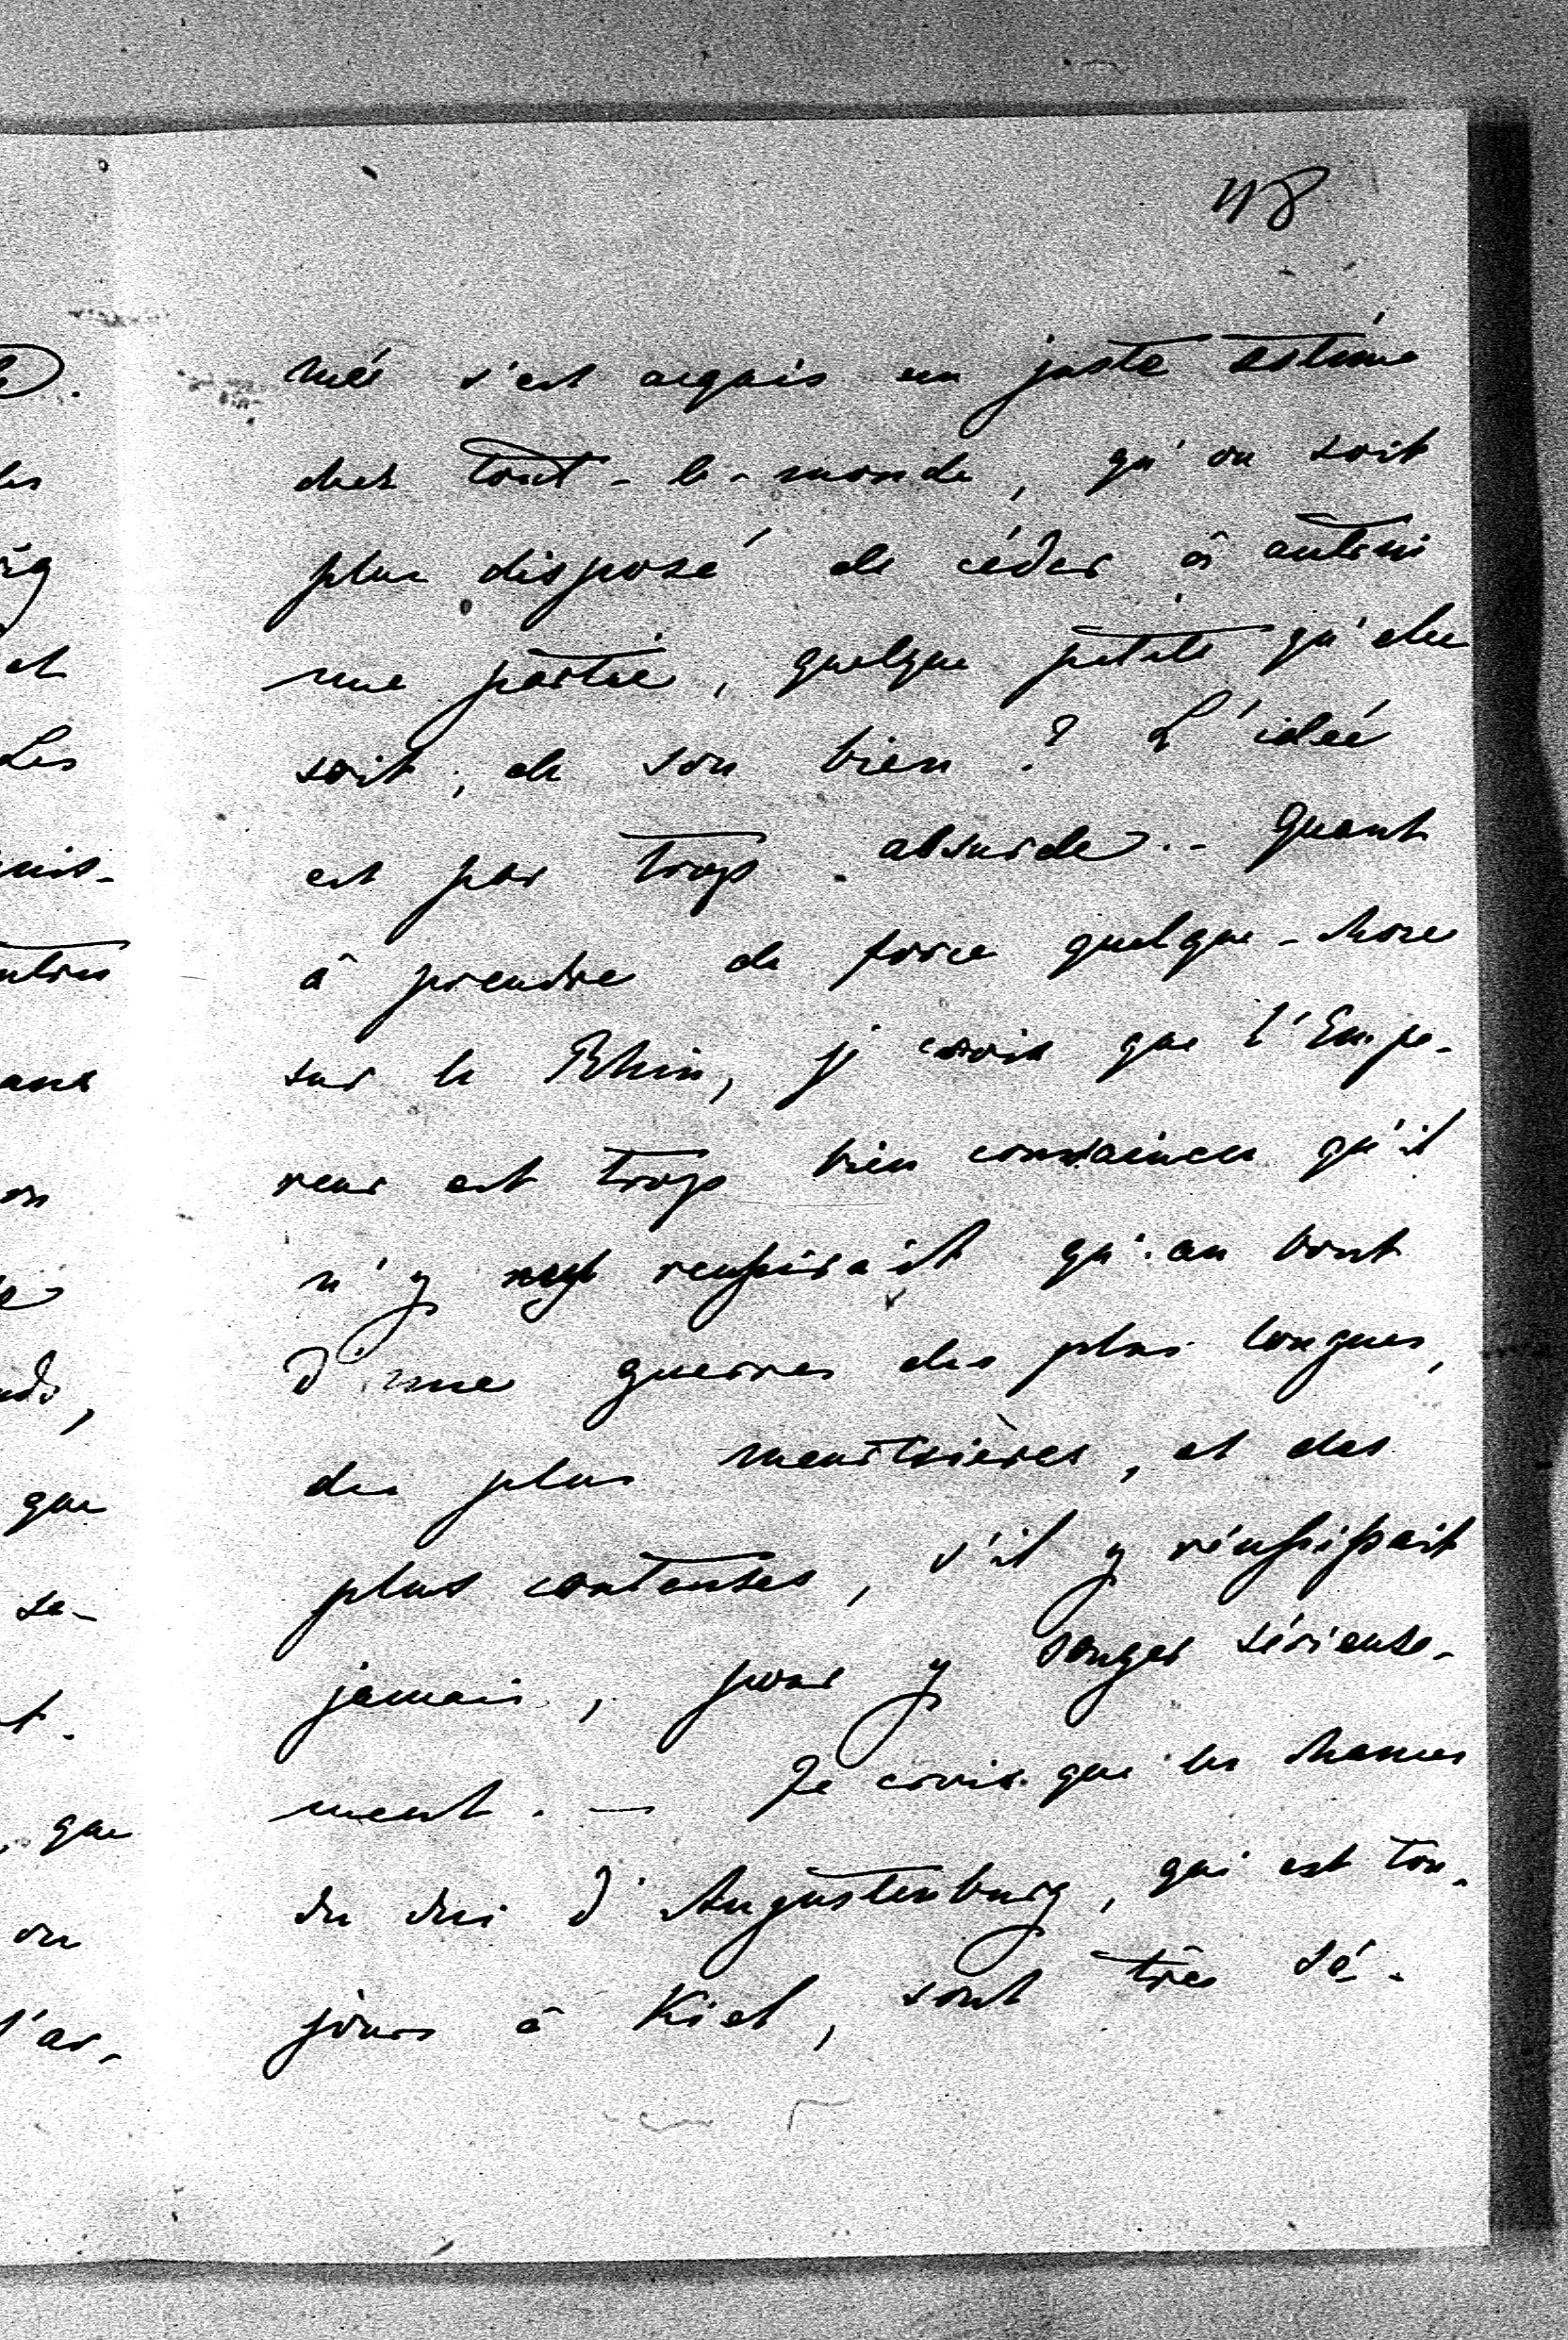 48
mée s'est acquis un juste estime
chez tout-le-monde, qu'on soit
plus disposé de céder à autrui
une partie, quelque petite qu'elle
soit, de son bien? L'idée
est par trop absurde. - Quant
à prendre de force quelque-chose
sur le Rhin, je crois que l'Empe-
reur est trop bien convaincu qu'il
n'y reussirait qu'au bout
d'une guerres des plus longues,
des plus meurtrières, et des
plus couteuses, s'il y réussissait
jamais, pour y songer sérieuse-
ment. — Je crois que les chances
du duc d'Augustenburg, qui est tou-
jours à Kiel, sont très sé-